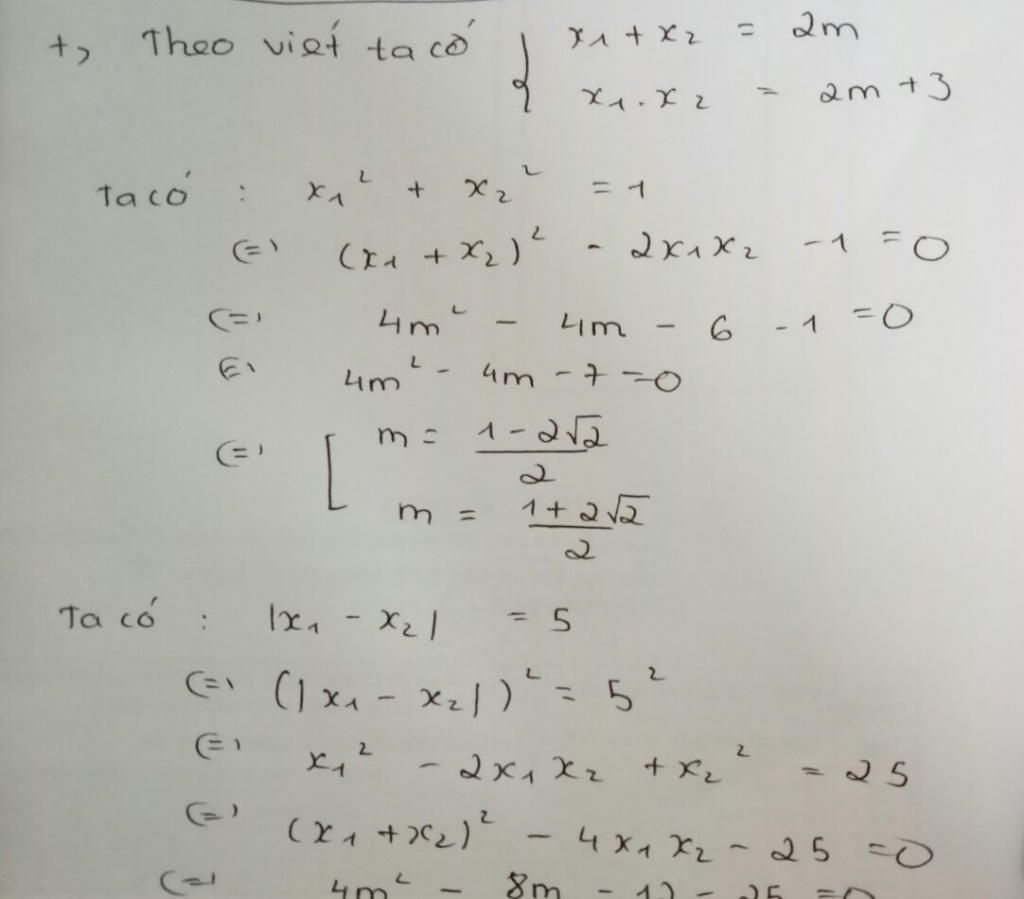 +, Theo viét ta có { x₁ + x₂ = 2m
x₁ . x₂ = 2m + 3
Ta có : x₁² + x₂² = 1
(=) (x₁ + x₂)² - 2x₁x₂ - 1 = 0
(=) 4m² - 4m - 6 - 1 = 0
(=) 4m² - 4m - 7 = 0
(=) [ m = (1 - 2√2)/2
m = (1 + 2√2)/2
Ta có : |x₁ - x₂| = 5
(=) (|x₁ - x₂|)² = 5²
(=) x₁² - 2x₁x₂ + x₂² = 25
(=) (x₁ + x₂)² - 4x₁x₂ - 25 = 0
(=) 4m² - 8m - 12 - 25 = 0